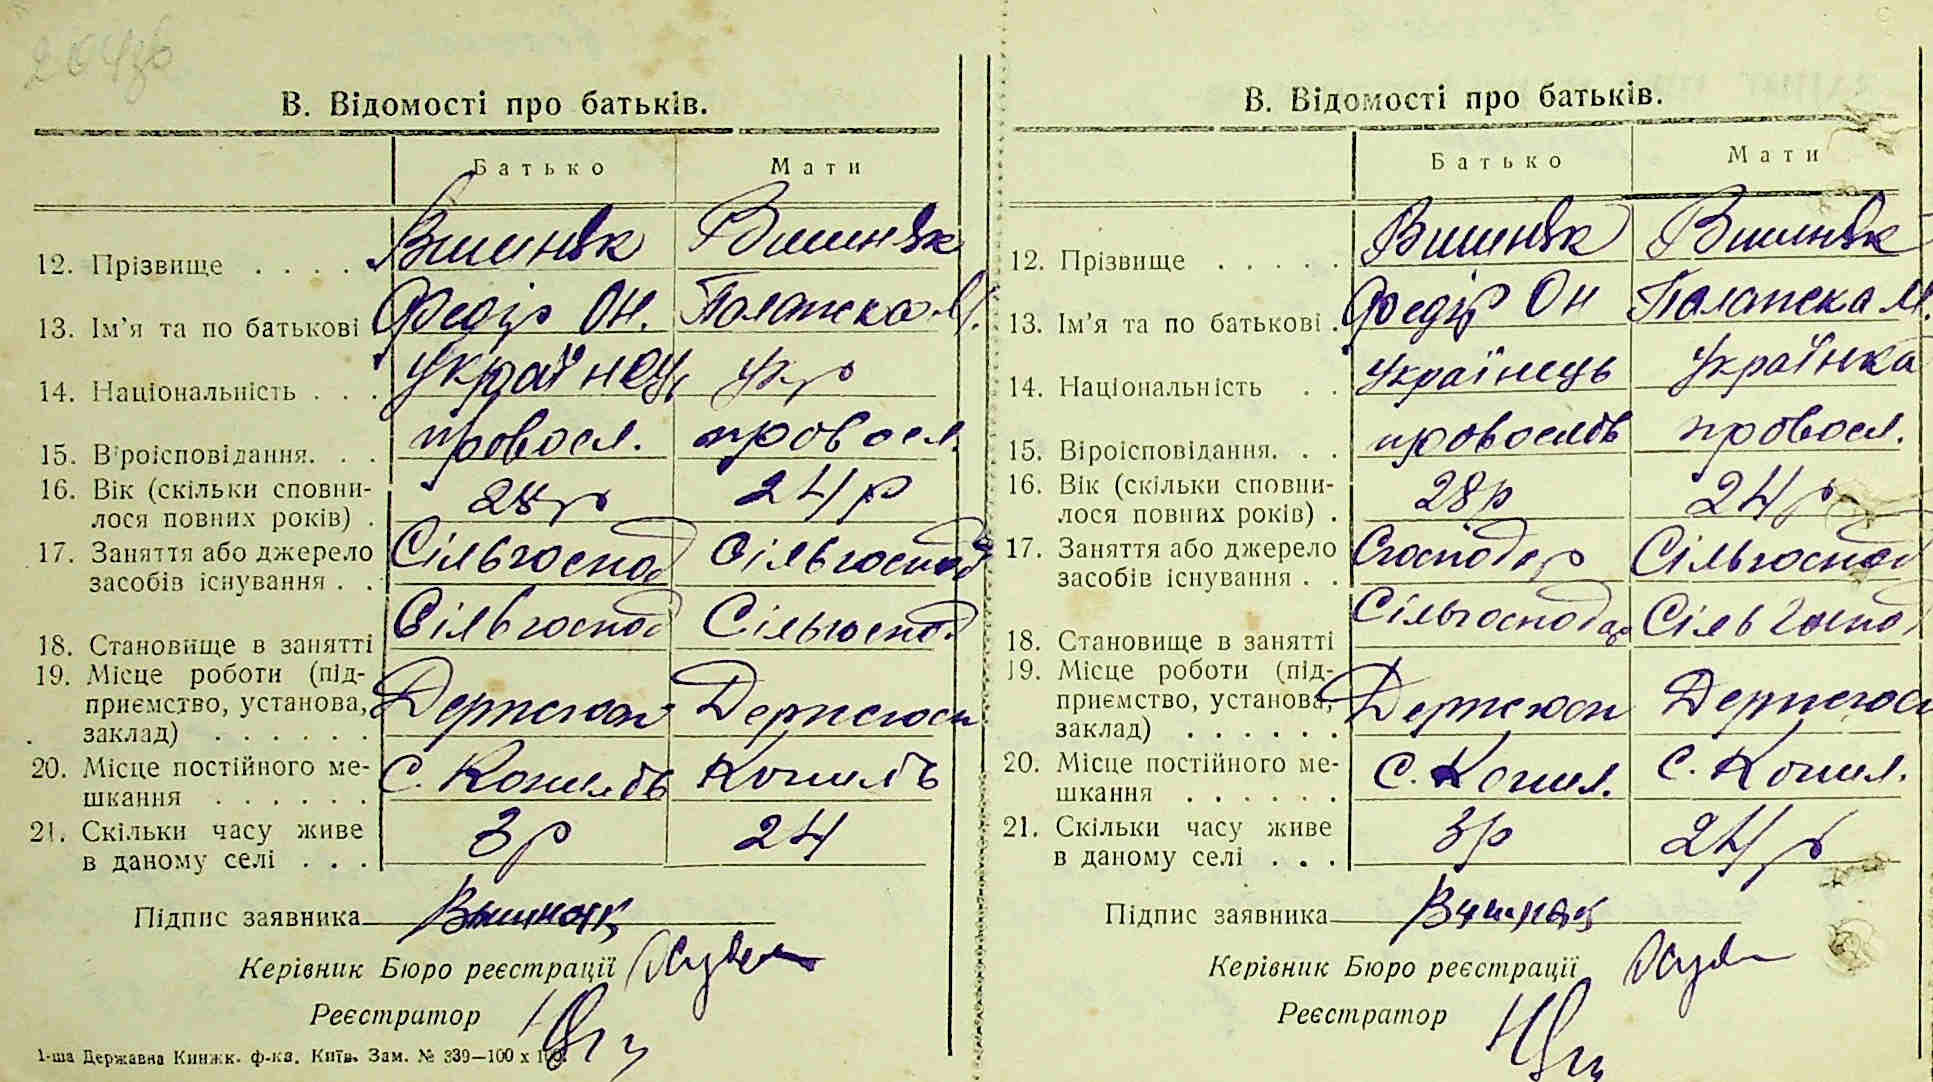 204зв
В. Відомості про батьків.
Батько Мати
12. Прізвище . . . . Вишняк Вишняк
13. Ім'я та по батькові Федір Он. Палажка М.
14. Національність . . . українець укр
15. Віроісповідання. . . провосл. провосл.
16. Вік (скільки сповни-
лося повних років) . 28р 24р
17. Заняття або джерело
засобів існування . . Сільгоспод Сільгоспод
18. Становище в занятті Сільгоспод Сільгоспод
19. Місце роботи (під-
приємство, установа,
заклад) . . . . . .
20. Місце постійного ме-
шкання . . . . . . С.
21. Скільки часу живе
в даному селі . . . 3р 24
Підпис заявника Вишняк
Керівник Бюро реєстрації
Реєстратор
1-ша Державна Книжк. ф-ка. Київ. Зам. № 339—100 х 100.
В. Відомості про батьків.
Батько Мати
12. Прізвище . . . . . Вишняк Вишняк
13. Ім'я та по батькові . Федір Он Палажка М.
14. Національність . . Українець Українка
15. Віроісповідання. . . провослав провосл.
16. Вік (скільки сповни-
лося повних років) . 28р 24р
17. Заняття або джерело
засобів існування . . Сгосподар Сільгоспод
18. Становище в занятті Сільгосподар Сільгоспод
19. Місце роботи (під-
приємство, установа,
заклад) . . . . . .
20. Місце постійного ме-
шкання . . . . . . С. С.
21. Скільки часу живе
в даному селі . . . 3р 24р
Підпис заявника Вишняк
Керівник Бюро реєстрації
Реєстратор